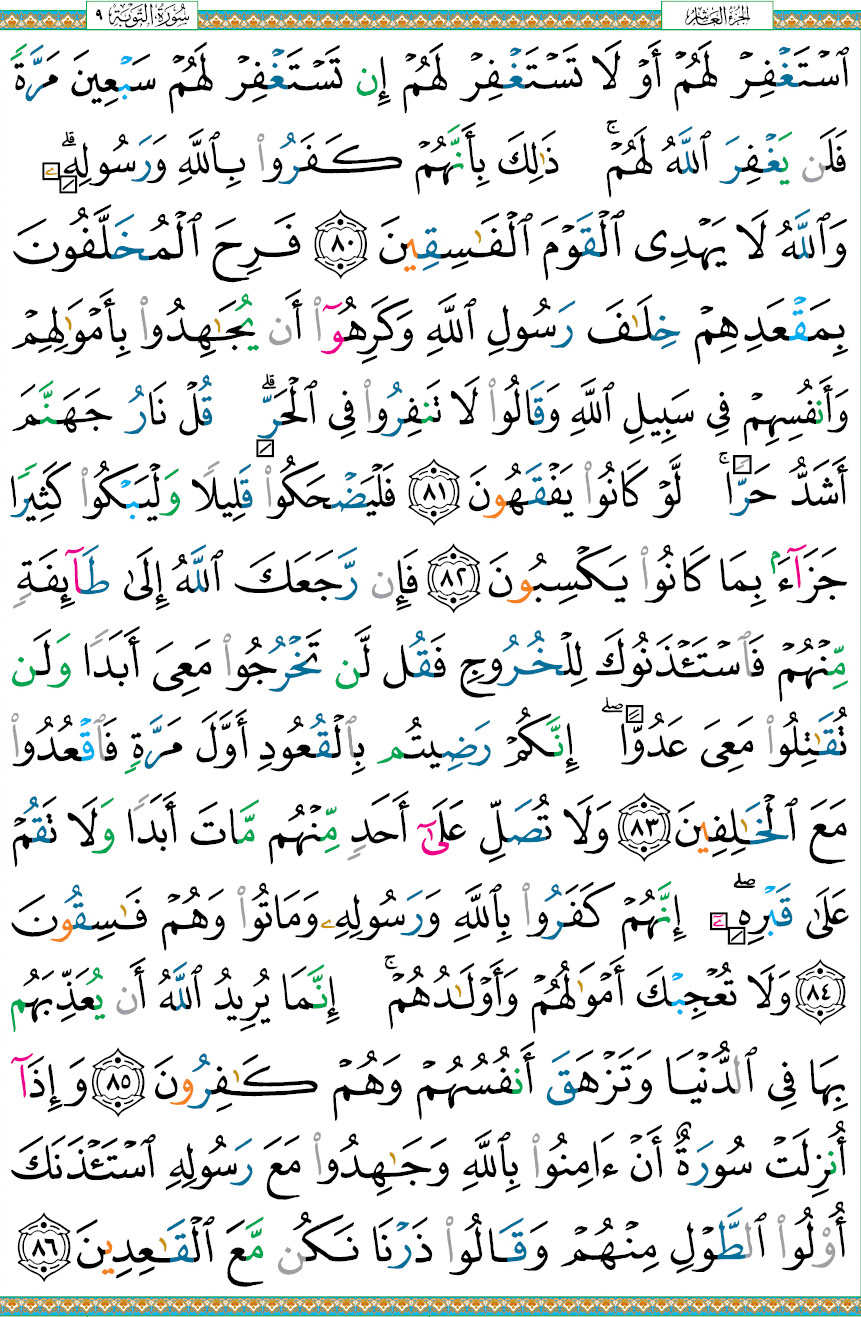 الجزء العاشر
سورة التوبة ٩
ٱسْتَغْفِرْ لَهُمْ أَوْ لَا تَسْتَغْفِرْ لَهُمْ إِن تَسْتَغْفِرْ لَهُمْ سَبْعِينَ مَرَّةً
فَلَن يَغْفِرَ ٱللَّهُ لَهُمْ ۚ ذَٰلِكَ بِأَنَّهُمْ كَفَرُوا۟ بِٱللَّهِ وَرَسُولِهِۦ ۗ
وَٱللَّهُ لَا يَهْدِى ٱلْقَوْمَ ٱلْفَـٰسِقِينَ ٨٠ فَرِحَ ٱلْمُخَلَّفُونَ
بِمَقْعَدِهِمْ خِلَـٰفَ رَسُولِ ٱللَّهِ وَكَرِهُوٓا۟ أَن يُجَـٰهِدُوا۟ بِأَمْوَٰلِهِمْ
وَأَنفُسِهِمْ فِى سَبِيلِ ٱللَّهِ وَقَالُوا۟ لَا تَنفِرُوا۟ فِى ٱلْحَرِّ ۗ قُلْ نَارُ جَهَنَّمَ
أَشَدُّ حَرًّا ۚ لَّوْ كَانُوا۟ يَفْقَهُونَ ٨١ فَلْيَضْحَكُوا۟ قَلِيلًا وَلْيَبْكُوا۟ كَثِيرًا
جَزَآءًۢ بِمَا كَانُوا۟ يَكْسِبُونَ ٨٢ فَإِن رَّجَعَكَ ٱللَّهُ إِلَىٰ طَآئِفَةٍ
مِّنْهُمْ فَٱسْتَـْٔذَنُوكَ لِلْخُرُوجِ فَقُل لَّن تَخْرُجُوا۟ مَعِىَ أَبَدًا وَلَن
تُقَـٰتِلُوا۟ مَعِىَ عَدُوًّا ۖ إِنَّكُمْ رَضِيتُم بِٱلْقُعُودِ أَوَّلَ مَرَّةٍ فَٱقْعُدُوا۟
مَعَ ٱلْخَـٰلِفِينَ ٨٣ وَلَا تُصَلِّ عَلَىٰٓ أَحَدٍ مِّنْهُم مَّاتَ أَبَدًا وَلَا تَقُمْ
عَلَىٰ قَبْرِهِۦٓ ۖ إِنَّهُمْ كَفَرُوا۟ بِٱللَّهِ وَرَسُولِهِۦ وَمَاتُوا۟ وَهُمْ فَـٰسِقُونَ
٨٤ وَلَا تُعْجِبْكَ أَمْوَٰلُهُمْ وَأَوْلَـٰدُهُمْ ۚ إِنَّمَا يُرِيدُ ٱللَّهُ أَن يُعَذِّبَهُم
بِهَا فِى ٱلدُّنْيَا وَتَزْهَقَ أَنفُسُهُمْ وَهُمْ كَـٰفِرُونَ ٨٥ وَإِذَآ
أُنزِلَتْ سُورَةٌ أَنْ ءَامِنُوا۟ بِٱللَّهِ وَجَـٰهِدُوا۟ مَعَ رَسُولِهِ ٱسْتَـْٔذَنَكَ
أُو۟لُوا۟ ٱلطَّوْلِ مِنْهُمْ وَقَالُوا۟ ذَرْنَا نَكُن مَّعَ ٱلْقَـٰعِدِينَ ٨٦